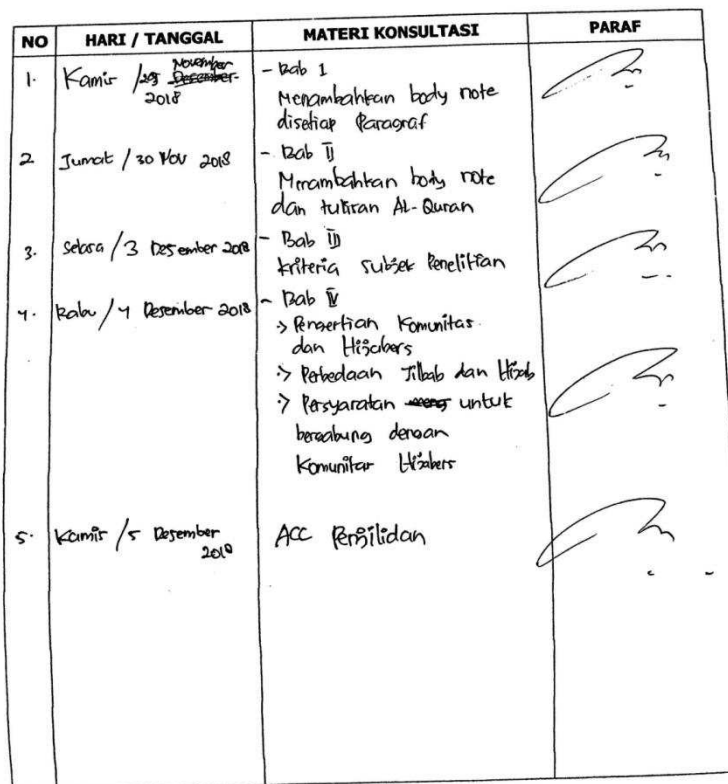 NO HARI / TANGGAL MATERI KONSULTASI PARAF
1. Kamis / 29 November
Desember
2018
- Bab I
Menambahkan body note
disetiap Paragraf
2 Jumat / 30 Nov 2018
- Bab II
Menambahkan body note
dan tulisan AL-Quran
3. Selasa / 3 Desember 2018
- Bab III
Kriteria Subjek Penelitian
4. Rabu / 4 Desember 2018
- Bab IV
-> Pengertian Komunitas
dan Hijabers
-> Perbedaan Jilbab dan Hijab
-> Persyaratan untuk
bergabung dengan
Komunitas Hijabers
5. Kamis / 5 Desember
2018
ACC Penjilidan